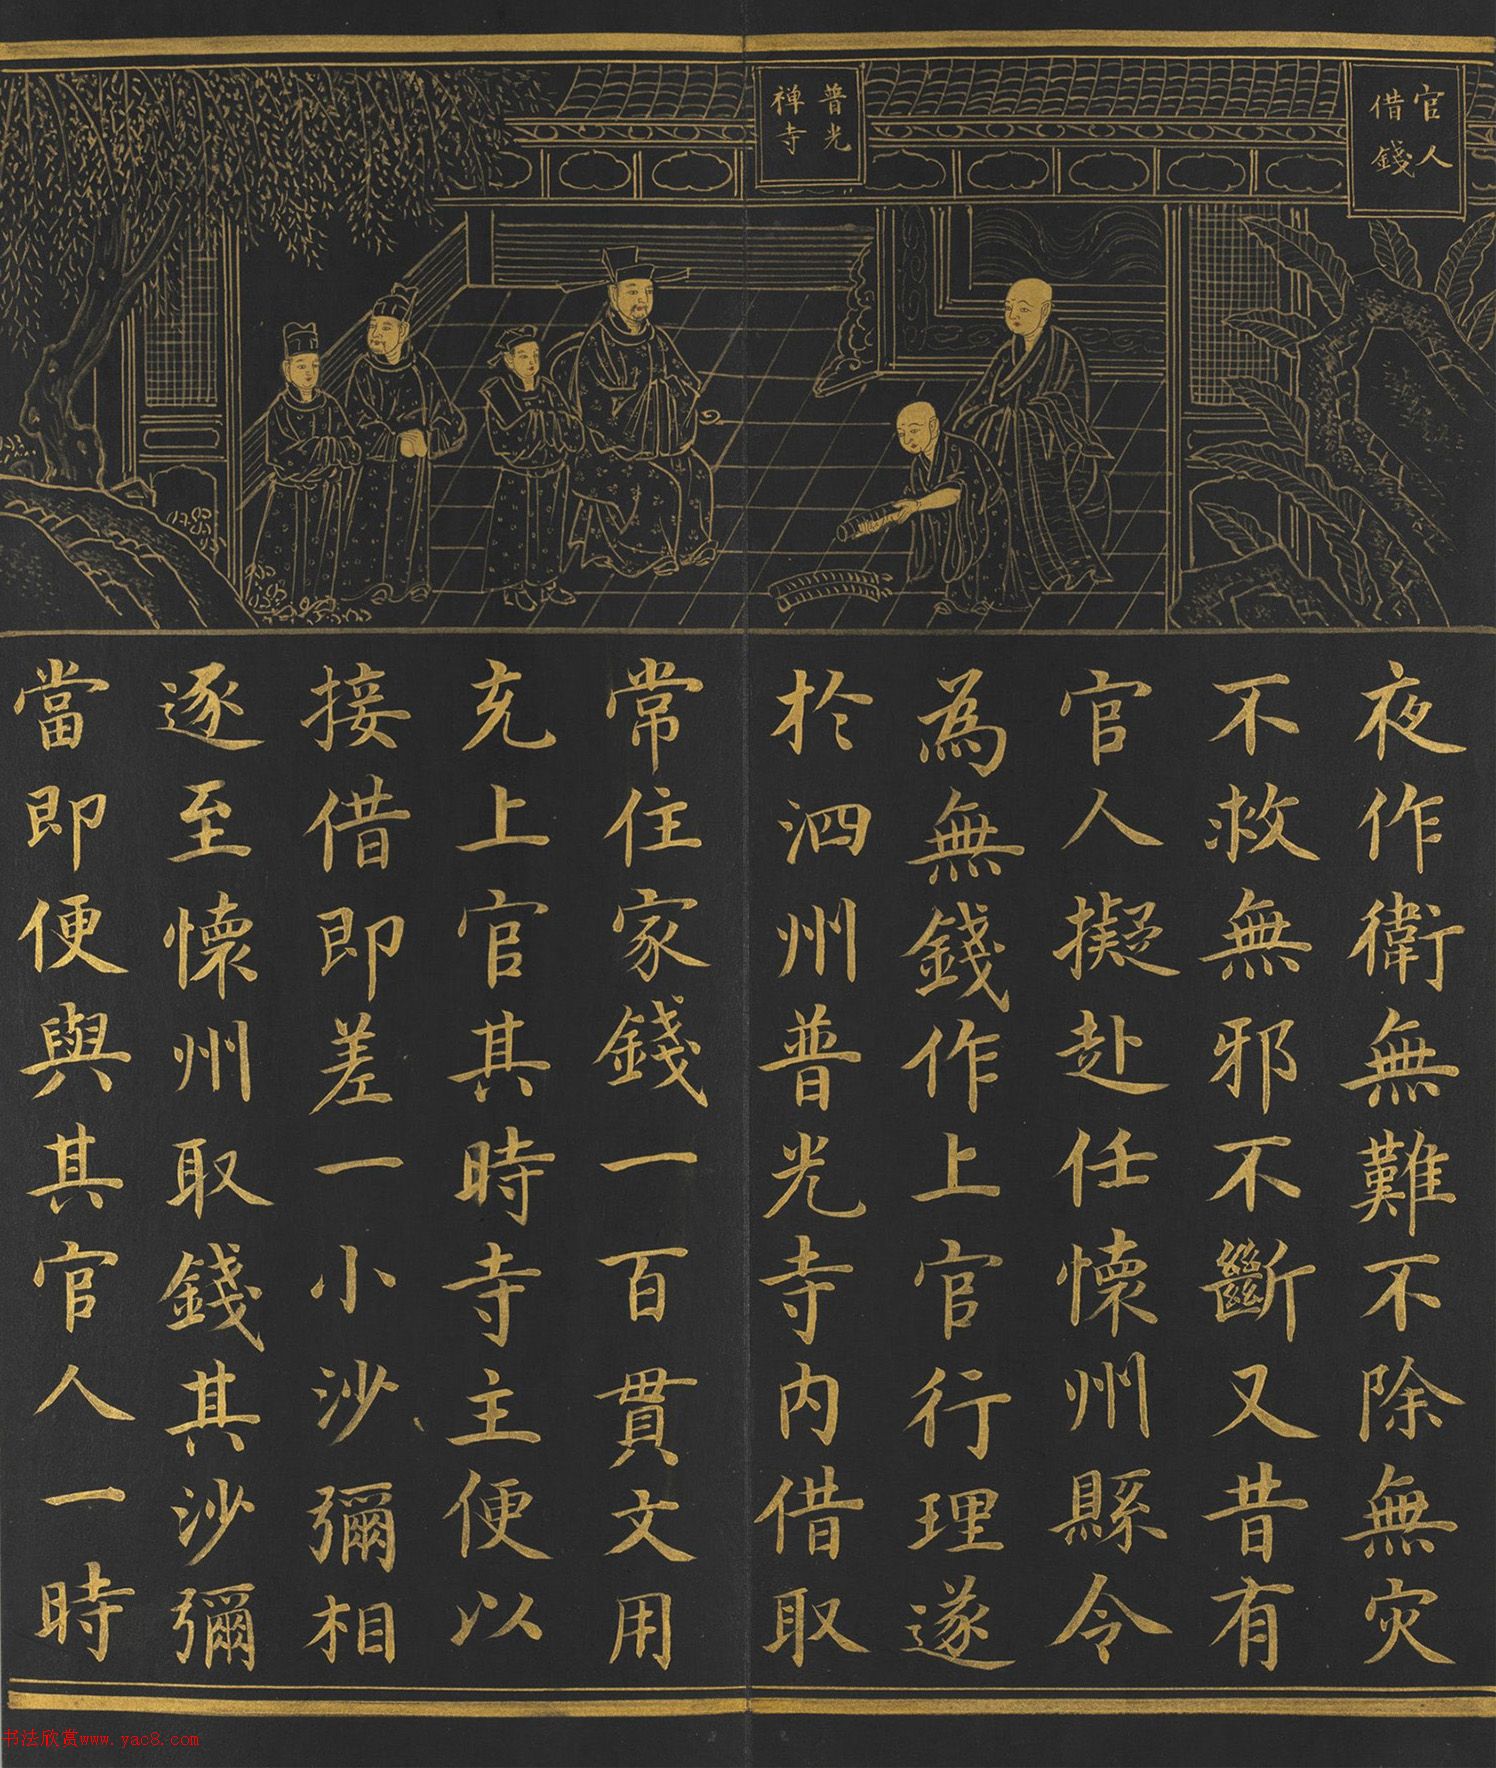 官人
借錢
普光
禅寺
夜作衛無難不除無灾
不救無邪不斷又昔有
官人擬赴任懐州縣令
為無錢作上官行理遂
於泗州普光寺内借取
常住家錢一百貫文用
充上官其時寺主便以
接借即差一小沙彌相
逐至懐州取錢其沙彌
當即便與其官人一時
书法欣赏www.yac8.com